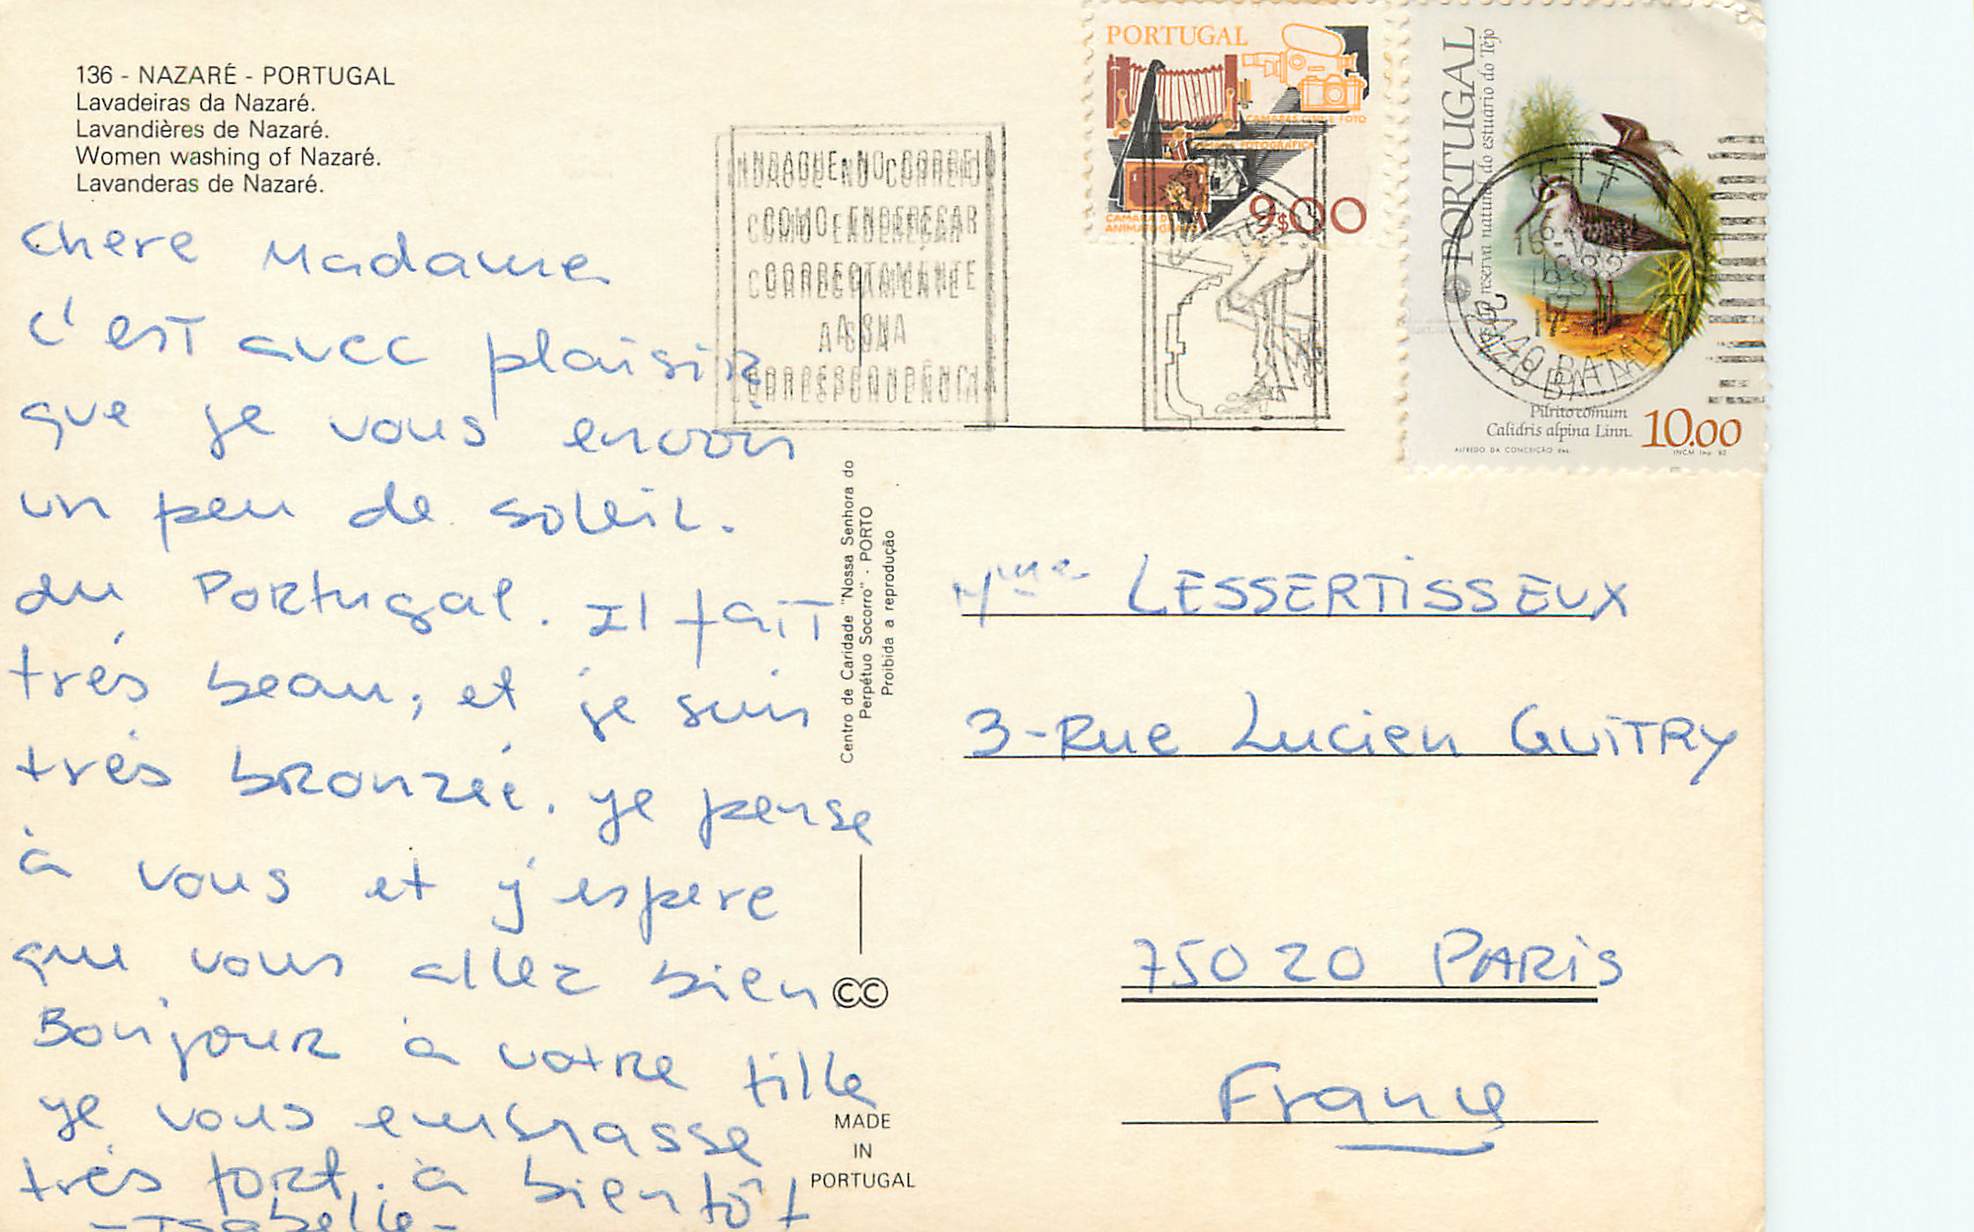 136 - NAZARÉ - PORTUGAL
Lavadeiras da Nazaré.
Lavandières de Nazaré.
Women washing of Nazaré.
Lavanderas de Nazaré.
Chere Madame
c'est avec plaisir
que je vous envoii
un peu de soleil.
du Portugal. Il fait
trés beau, et je suis
trés bronzée. je pense
à vous et j'espere
que vous allez bien
Bonjour à votre fille
je vous embrasse
trés fort. à bientôt
- Isabelle -
INDAGUE NO CORREIO
COMO ENDEREÇAR
CORRECTAMENTE
A SUA
CORRESPONDÊNCIA
PORTUGAL
CAMARAS CINE E FOTO
CAMARA FOTOGRÁFICA
9$00
PORTUGAL
reserva natural do estuário do Tejo
CTT
Pilrito comum
Calidris alpina Linn.
10.00
ALFREDO DA CONCEIÇÃO
INCM Imp 82
Centro de Caridade "Nossa Senhora do
Perpétuo Socorro" - PORTO
Proibida a reprodução
CC
MADE
IN
PORTUGAL
Mme LESSERTISSEUX
3-Rue Lucien GUITRY
75020 PARIS
France